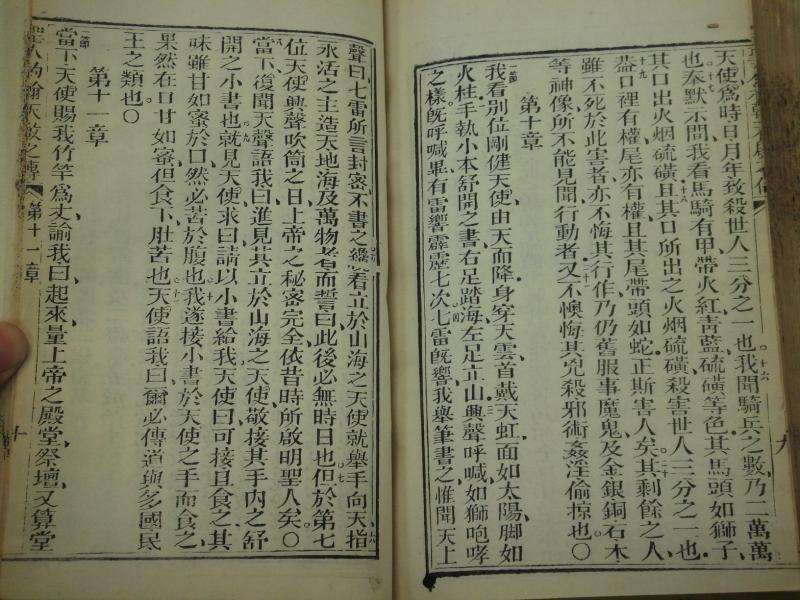 天使爲時日月年致殺世人三分之一也十六我聞騎兵之數乃二萬萬
也十七奉默示間我看馬騎有甲帶火紅青藍硫磺等色其馬頭如獅子
其口出火烟硫磺且十八其口所出之火烟硫磺殺害世人三分之一也
十九蓋口裡有權尾亦有權且其尾帶頭如蛇正斯害人矣二十其剩餘之人
雖不死於此害者亦不悔其行作乃仍舊服事魔鬼及金銀銅石木
等神像所不能見聞行動者又二十一不懊悔其兇殺邪術姦淫偷掠也○
第十章
一節我看別位剛健天使由天而降身穿天雲首戴天虹面如太陽脚如
火柱手執小本舒開之書右足踏海左足立山興聲呼喊如獅咆哮
之樣旣呼喊畢有雷響霹靂七次四七雷旣響我舉筆書之惟聞天上
聲曰七雷所言封密不書之緣五看立於山海之天使就舉手向天指六
永活之主造天地海及萬物者而誓曰此後必無時日也七但於第七
位天使興聲吹筒之日上帝之秘密完全依昔時所啟明聖人矣○
八當下復聞天聲語我曰進見其立於山海之天使敬接其手內之舒
開之小書也九就見天使求曰請以小書給我天使曰可接且食之其
味雖甘如蜜於口然必苦於腹也十我遂接小書於天使之手而食之
果然在口甘如蜜但食下肚苦也十一天使語我曰爾必傳道與多國民
王之類也○
第十一章
一節當下天使賜我竹竿爲丈諭我曰起來量上帝之殿堂祭壇又算堂
聖人約翰天啟之傳 第十一章 十